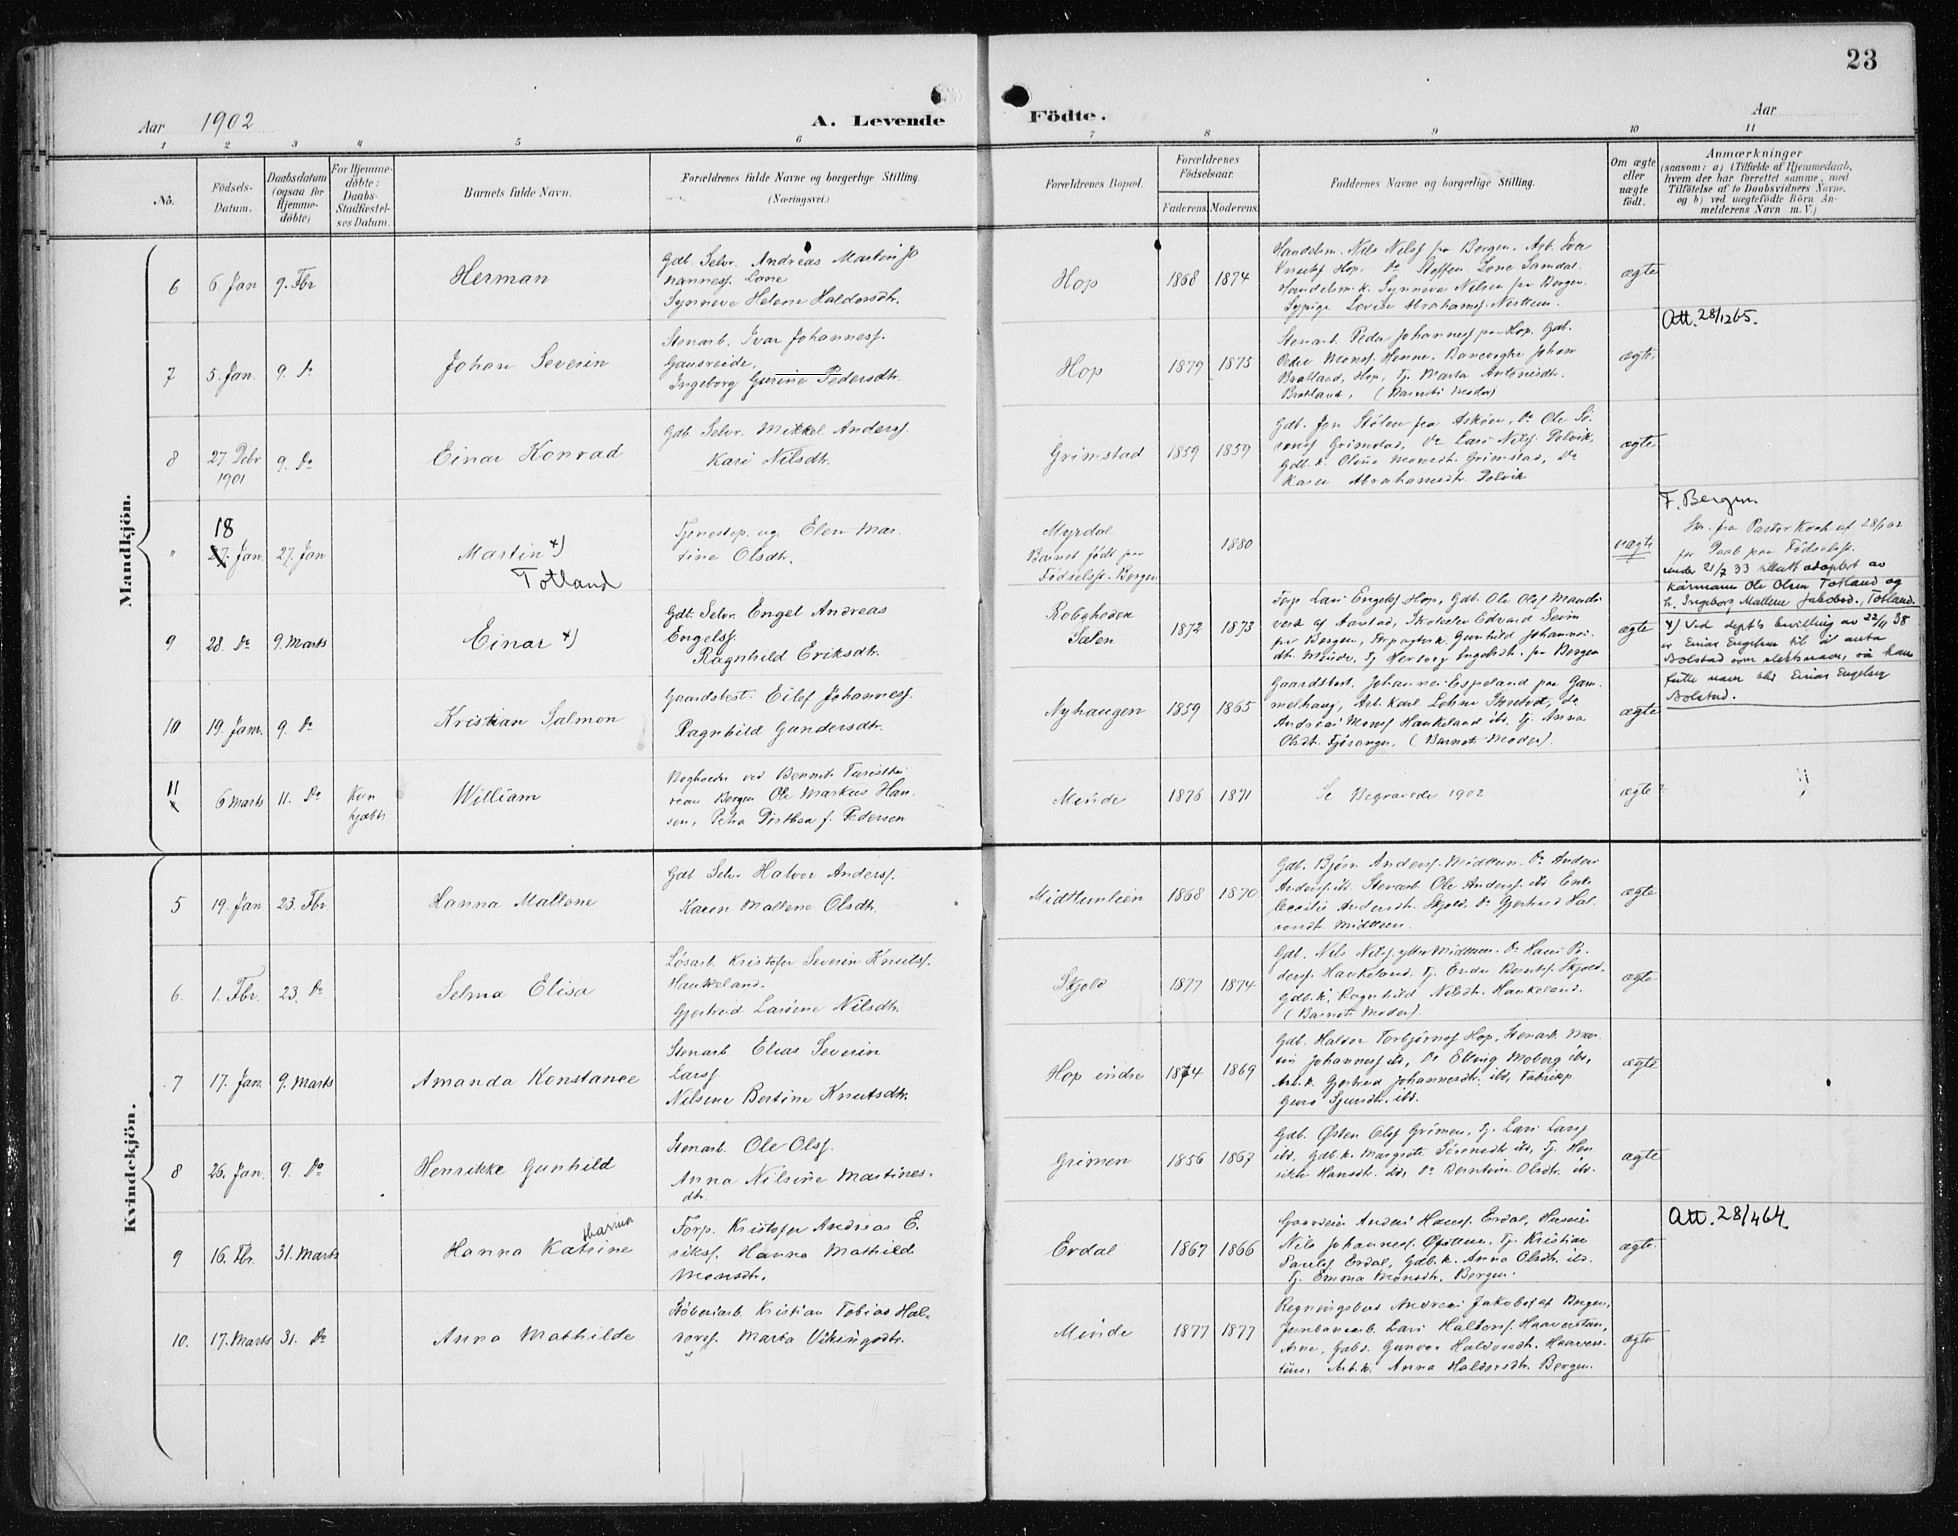 23
Aar 1902
A. Levende Födte.
Aar
1 2 3 4 5 6 7 8 9 10 11
No.
Födsels-
Datum.
Daabsdatum
(ogsaa for
Hjemme-
döbte)
For Hjemme-
döbte:
Daabs-
Stadfæstel-
ses Datum.
Barnets fulde Navn.
Forældrenes fulde Navne og borgerlige Stilling.
(Næringsvei.)
Forældrenes Bopæl.
Forældrenes
Födselsaar.
Faderens. Moderens.
Faddernes Navne og borgerlige Stilling.
Om ægte
eller
uægte
födt.
Anmærkninger
(saasom: a) i Tilfælde af Hjemmedaab,
hvem der har forrettet samme, med
Tilföielse af to Daabsvidners Navne,
og b) ved uægtefödte Börn An-
melderens Navn m. V.)
Mandkjön.
6 6. Jan 9. Fbr Herman
Gdb. Selv. Andreas Martin Jo
hanness. Lone
Synneve Helene Haldorsdtr.
Hop 1868 1874
Handelsm. Nils Nilss fra Bergen, Arb. Ivar
Knutss Hop, Do Steffen Lone Samdal.
Handelsm. k. Synneve Nilsen fra Bergen.
Sypige Lovise Abrahamss. Nesttun.
ægte
7 5. Jan. 9. Do Johan Severin
Stenarb. Ivar Johanness.
Gausreide,
Ingeborg Gurine Pedersdtr.
Hop 1879 1875
Stenarb. Peder Johanness paa Hop, Gdb.
Peder Monss. Henne, Banevogter Johan
Bratland, Hop, Tj. Marta Antonisdtr.
Bratland, (Barnets Moder)
ægte
Att. 28/12 65.
8 27. Dcbr 1901 9. Do Einar Konrad
Gdb. Selv. Mikkel Anderss.
Kari Nilsdtr.
Grimstad 1859 1859
Gdb. Jon Stölen fra Asköen, Do Ole Sö-
renss Grimstad, Do Lars Nilss. Dolvik.
Gdb. k. Oline Monsdtr. Grimstad, Do
Karen Abrahamsdtr. Dolvik
ægte
" 18 27. Jan. 27. Jan Martin x) Totland
Tjenestep. ug. Elen Mar-
tine Olsdtr.
Myrdal
Barnet født paa
Fødselsst. Bergen
1880
uægte
F. Bergen
Skr. fra Pastor Koch af 28/1 02
for Daab paa Fødselsst.
under 21/7 33 adoptert av
Kårmann Ole Olsen Totland og
h. Ingeborg Mallene Jakobsd., Totland.
9 28. Do 9. Marts Einar x)
Gdb. Selv. Engel Andreas
Engelss.
Ragnhild Eriksdtr.
Sælen 1872 1873
Forp. Lars Engelss Hop, Gdb. Ole Olss
fra Bergen, Gunhild Johannes-
dtr. Minde, Tj. Herborg Engelsdtr. fra Bergen
ægte
x) Ved dept's bevilling av 22/11 38
er Einar Engelsen til å anta
Bolstad som slektsnavn, så hans
fulle navn blir Einar Engelsen
Bolstad.
10 19. Jan. 9. Do Kristian Salmon
Gaardsbest. Eilef Johanness.
Ragnhild Gundersdtr.
Nyhaugen 1859 1865
Gaardsbest. Johannes Espeland paa Gam-
melhaug, Arb. Karl Lohne
Andreas Monss Haukeland ibd. Tj. Anna
Olsdtr. Fjösanger, (Barnets Moder).
ægte
11 6 Marts 11. Do Kun hjdbt William
Bogholder ved Bennets Turistbu-
reau Bergen Ole Markus Han-
sen, Petra Dorthea f. Pedersen
Minde 1876 1871
Se Begravede 1902
ægte
Kvindekjön.
5 19. Jan 23. Fbr Hanna Mallene
Gdb. Selv. Halvor Anderss.
Karen Mallene Olsdtr.
Midttunleien 1868 1870
Gdb. Bjørn Anderss. Midttun. Do Anders
Anderss. ib. Stenarb. Ole Anderss. ib. Enke
Cecilie Andersdtr. Skjold. Do Gjertrud Hal-
vorsdtr. Midttun.
ægte
6. 1. Fbr. 23. Do Selma Elisa
Løsarb. Kristofer Severin Knutss.
Haukeland.
Gjertrud Larsine Nilsdtr.
Skjold 1877 1874
Gdb. Nils Nilss. ytre Midttun. Do Hans Pe-
derss. Haukeland. Tj. Endre Berntss. Skjold.
Gdb. k. Ragnhild Nilsdtr. Haukeland.
(Barnets Moder).
ægte
7 17. Jan. 9. Marts Amanda Konstance
Stenarb. Elias Severin
Larss.
Nilsine Bertine Knutsdtr.
Hop indre 1874 1869
Gdb. Haldor Torbjørnss Hop, Stenarb. Mar-
tin Johanness ib., Do Elling Moberg ibd.,
Arb. k. Gjertrud Johannesdtr. ibd, Fabrikp.
Guro Sjursdtr. ibd.
ægte
8 26. Jan. 9. Do Henrikke Gunhild
Stenarb. Ole Olss.
Anna Nilsine Martines-
dtr.
Grimen 1856 1867
Gdb. Østen Olss Grimen, Tj. Lars Larss
ibd, Gdb. k. Margrete Sörensdtr ibd, Tj. Hen-
rikke Hansdtr. ibd, Do Berntine Olsdtr. ibd.
ægte
9 16. Fbr. 31. Marts Hanna Katrine Marina
Forp. Kristofer Andreas E-
rikss. Hanna Mathilde
Monsdtr.
Erdal 1867 1866
Gaardeier Anders Hanss. Erdal,
Nils Johanness. Tj. Kristian
Paulss Erdal, Gdb. k. Anna Olsdtr. ibd.
Tj. Emma Monsdtr. Bergen.
ægte
Att. 28/4 64.
10. 17. Marts 31. Do Anna Mathilde
Støberiarb. Kristian Tobias Hal-
vorss. Marta Vikingsdtr.
Minde 1877 1877
Regningsbud Andreas Jakobss af Bergen,
Jernbanearb. Lars Haldorss. Haaverstun,
Arne, Gdb. Gunvor Haldorsdtr. Haavers-
tun, Arb. k. Anna Haldorsdtr. Bergen.
ægte